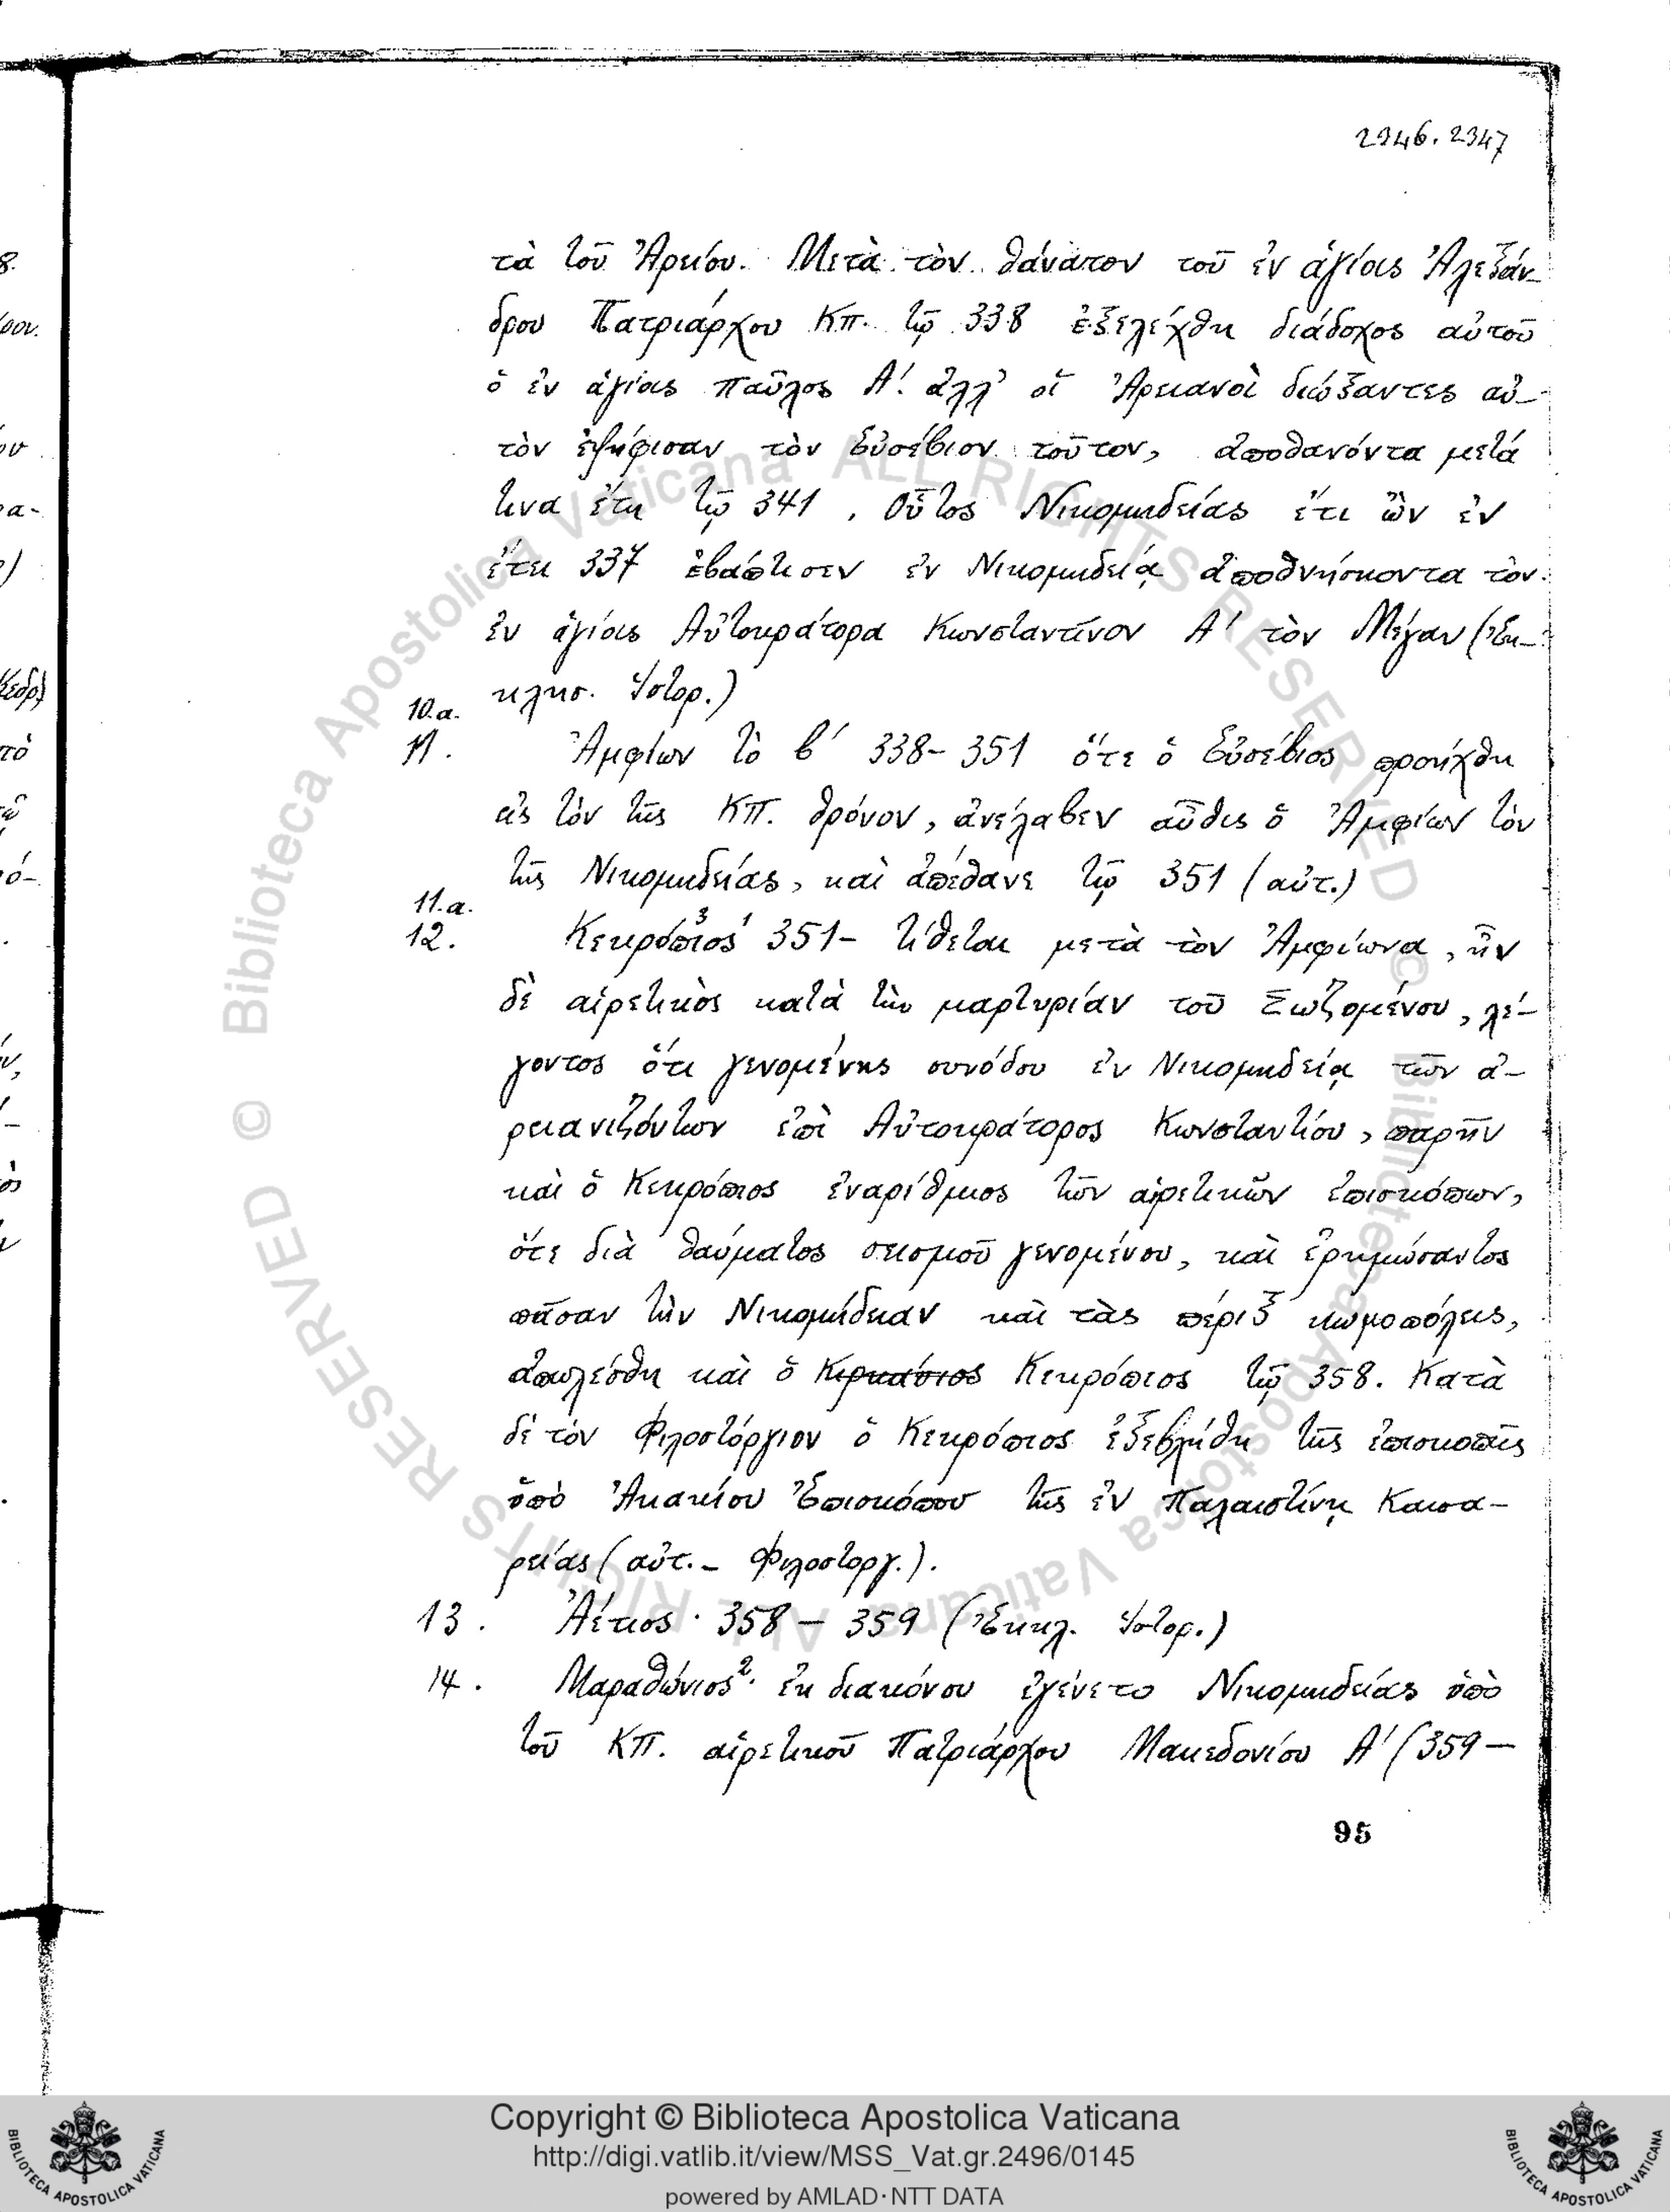 2346.2347
τὰ τοῦ Ἀρείου. Μετὰ τὸν θάνατον τοῦ ἐν ἁγίοις Ἀλεξάν-
δρου Πατριάρχου Κπ. τῷ 338 ἐξελέχθη διάδοχος αὐτοῦ
ὁ ἐν ἁγίοις Παῦλος Α΄. ἀλλ' οἱ Ἀρειανοὶ διώξαντες αὐ-
τὸν ἐψήφισαν τὸν Εὐσέβιον τοῦτον, ἀποθανόντα μετά
τινα ἔτη τῷ 341. Οὗτος Νικομηδείας ἔτι ὢν ἐν
ἔτει 337 ἐβάπτισεν ἐν Νικομηδείᾳ ἀποθνήσκοντα τὸν
ἐν ἁγίοις Αὐτοκράτορα Κωνσταντῖνον Α΄ τὸν Μέγαν (Ἐκ-
κλησ. Ἱστορ.)
10.α.
11. Ἀμφίων τὸ β΄ 338-351 ὅτε ὁ Εὐσέβιος προήχθη
εἰς τὸν τῆς ΚΠ. θρόνον, ἀνέλαβεν αὖθις ὁ Ἀμφίων τὸν
τῆς Νικομηδείας, καὶ ἀπέθανε τῷ 351 (αὐτ.)
11.α.
12. Κεκρόπιος 351- τίθεται μετὰ τὸν Ἀμφίωνα, ἦν
δὲ αἱρετικὸς κατὰ τὴν μαρτυρίαν τοῦ Σωζομένου, λέ-
γοντος ὅτι γενομένης συνόδου ἐν Νικομηδείᾳ τῶν ἀ-
ρειανιζόντων ἐπὶ Αὐτοκράτορος Κωνσταντίου, παρῆν
καὶ ὁ Κεκρόπιος ἐναρίθμιος τῶν αἱρετικῶν ἐπισκόπων,
ὅτε διὰ θαύματος σεισμοῦ γενομένου, καὶ ἐρημώσαντος
πᾶσαν τὴν Νικομήδειαν καὶ τὰς πέριξ κωμοπόλεις,
ἀπωλέσθη καὶ ὁ Κιρκάσιος Κεκρόπιος τῷ 358. Κατὰ
δὲ τὸν Φιλοστόργιον ὁ Κεκρόπιος ἐξεβλήθη τῆς ἐπισκοπῆς
ὑπὸ Ἀκακίου Ἐπισκόπου τῆς ἐν Παλαιστίνῃ Καισα-
ρείας (αὐτ. - Φιλοστοργ.).
13. Ἀέτιος· 358 - 359 (Ἐκκλ. Ἱστορ.)
14. Μαραθώνιος²· ἐκ διακόνου ἐγένετο Νικομηδείας ὑπὸ
τοῦ ΚΠ. αἱρετικοῦ Πατριάρχου Μακεδονίου Α΄ (359-
95
© Biblioteca Apostolica Vaticana ALL RIGHTS RESERVED © Biblioteca Apostolica Vaticana ALL RIGHTS RESERVED
Copyright © Biblioteca Apostolica Vaticana
http://digi.vatlib.it/view/MSS_Vat.gr.2496/0145
powered by AMLAD·NTT DATA
BIBLIOTECA APOSTOLICA VATICANA
BIBLIOTECA APOSTOLICA VATICANA